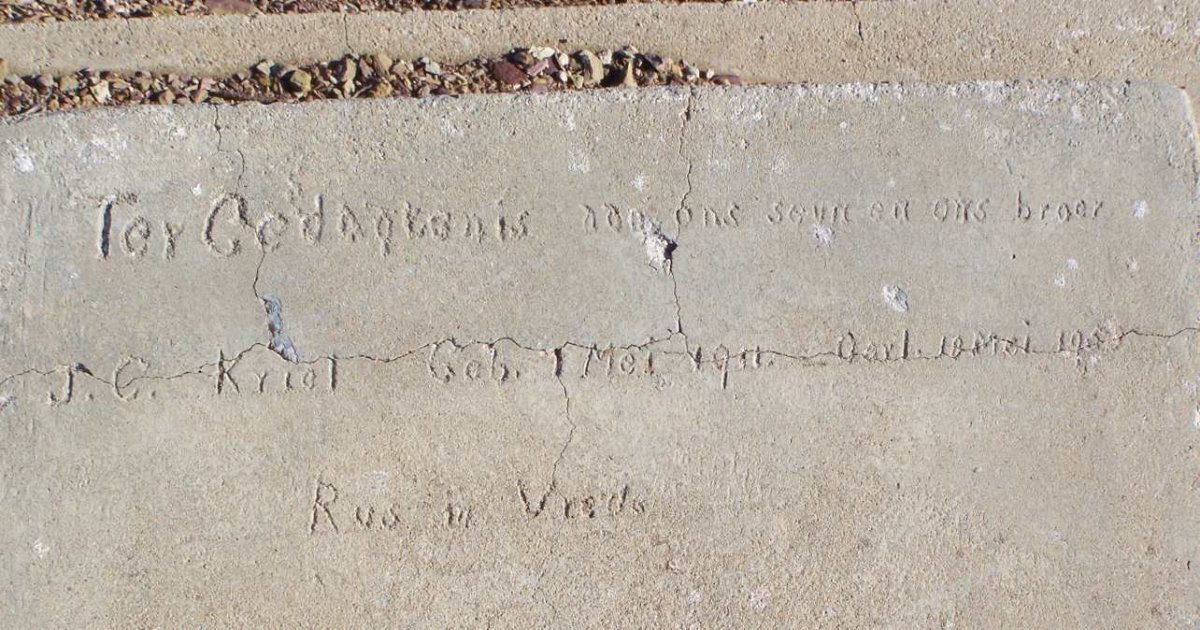 Ter Gedagtenis aan ons seun en ons broer
J. C. Kriel Geb. 1 Mei 1911. Oorl. 10 Mei
Rus in Vrede